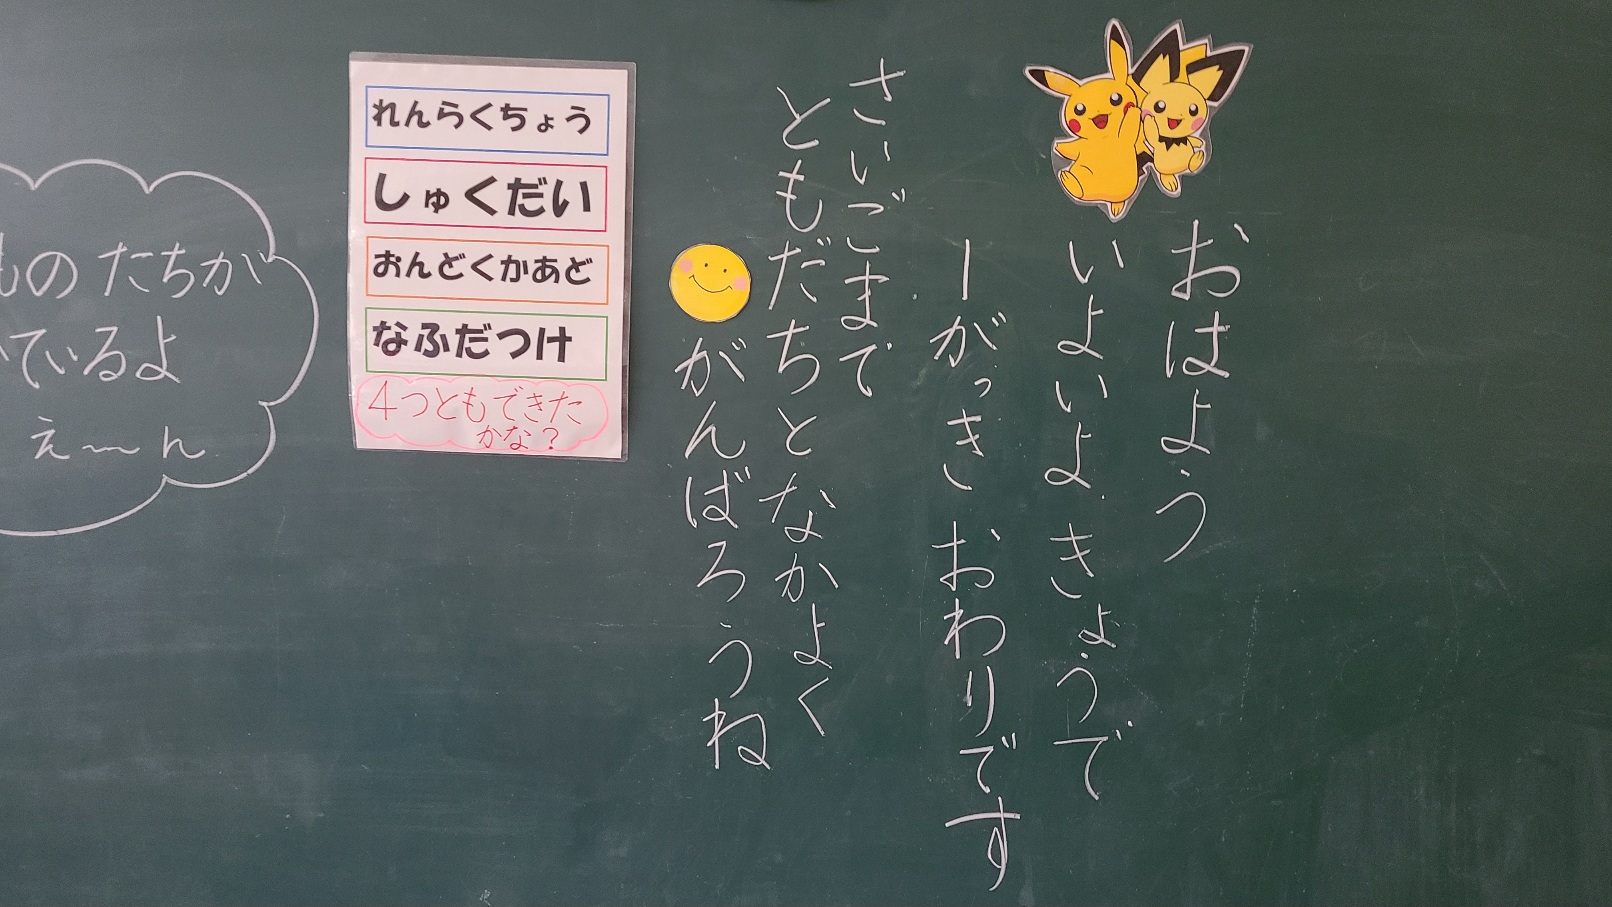 おはよう
いよいよ きょうで
1がっき おわりです
さいごまで
ともだちとなかよく
がんばろうね
れんらくちょう
しゅくだい
おんどくかあど
なふだつけ
4つともできた
かな？
ものたちが
ているよ
え〜ん